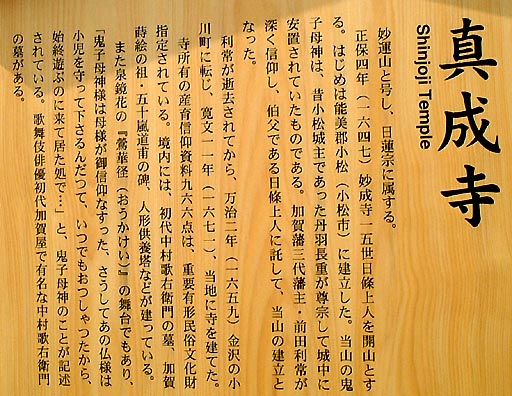 真成寺
Shinjoji Temple
妙運山と号し、日蓮宗に属する。
正保四年（一六四七）妙成寺一五世日條上人を開山とす
る。はじめは能美郡小松（小松市）に建立した。当山の鬼
子母神は、昔小松城主であった丹羽長重が尊宗して城中に
安置されていたものである。加賀藩三代藩主・前田利常が
深く信仰し、伯父である日條上人に託して、当山の建立と
なった。
利常が逝去されてから、万治二年（一六五九）金沢の小
川町に転じ、寛文一一年（一六七一）、当地に寺を建てた。
寺所有の産育信仰資料九六六点は、重要有形民俗文化財
指定されている。境内には、初代中村歌右衛門の墓、加賀
蒔絵の祖・五十嵐道甫の碑、人形供養塔などが建っている。
また泉鏡花の『鶯華径（おうかけい）』の舞台でもあり、
「鬼子母神様は母様が御信仰なすった、さうしてあの仏様は
小児を守って下さるんだつて、いつでもおつしゃつたから、
始終遊ぶのに来て居た処で…」と、鬼子母神のことが記述
されている。歌舞伎俳優初代加賀屋で有名な中村歌右衛門
の墓がある。